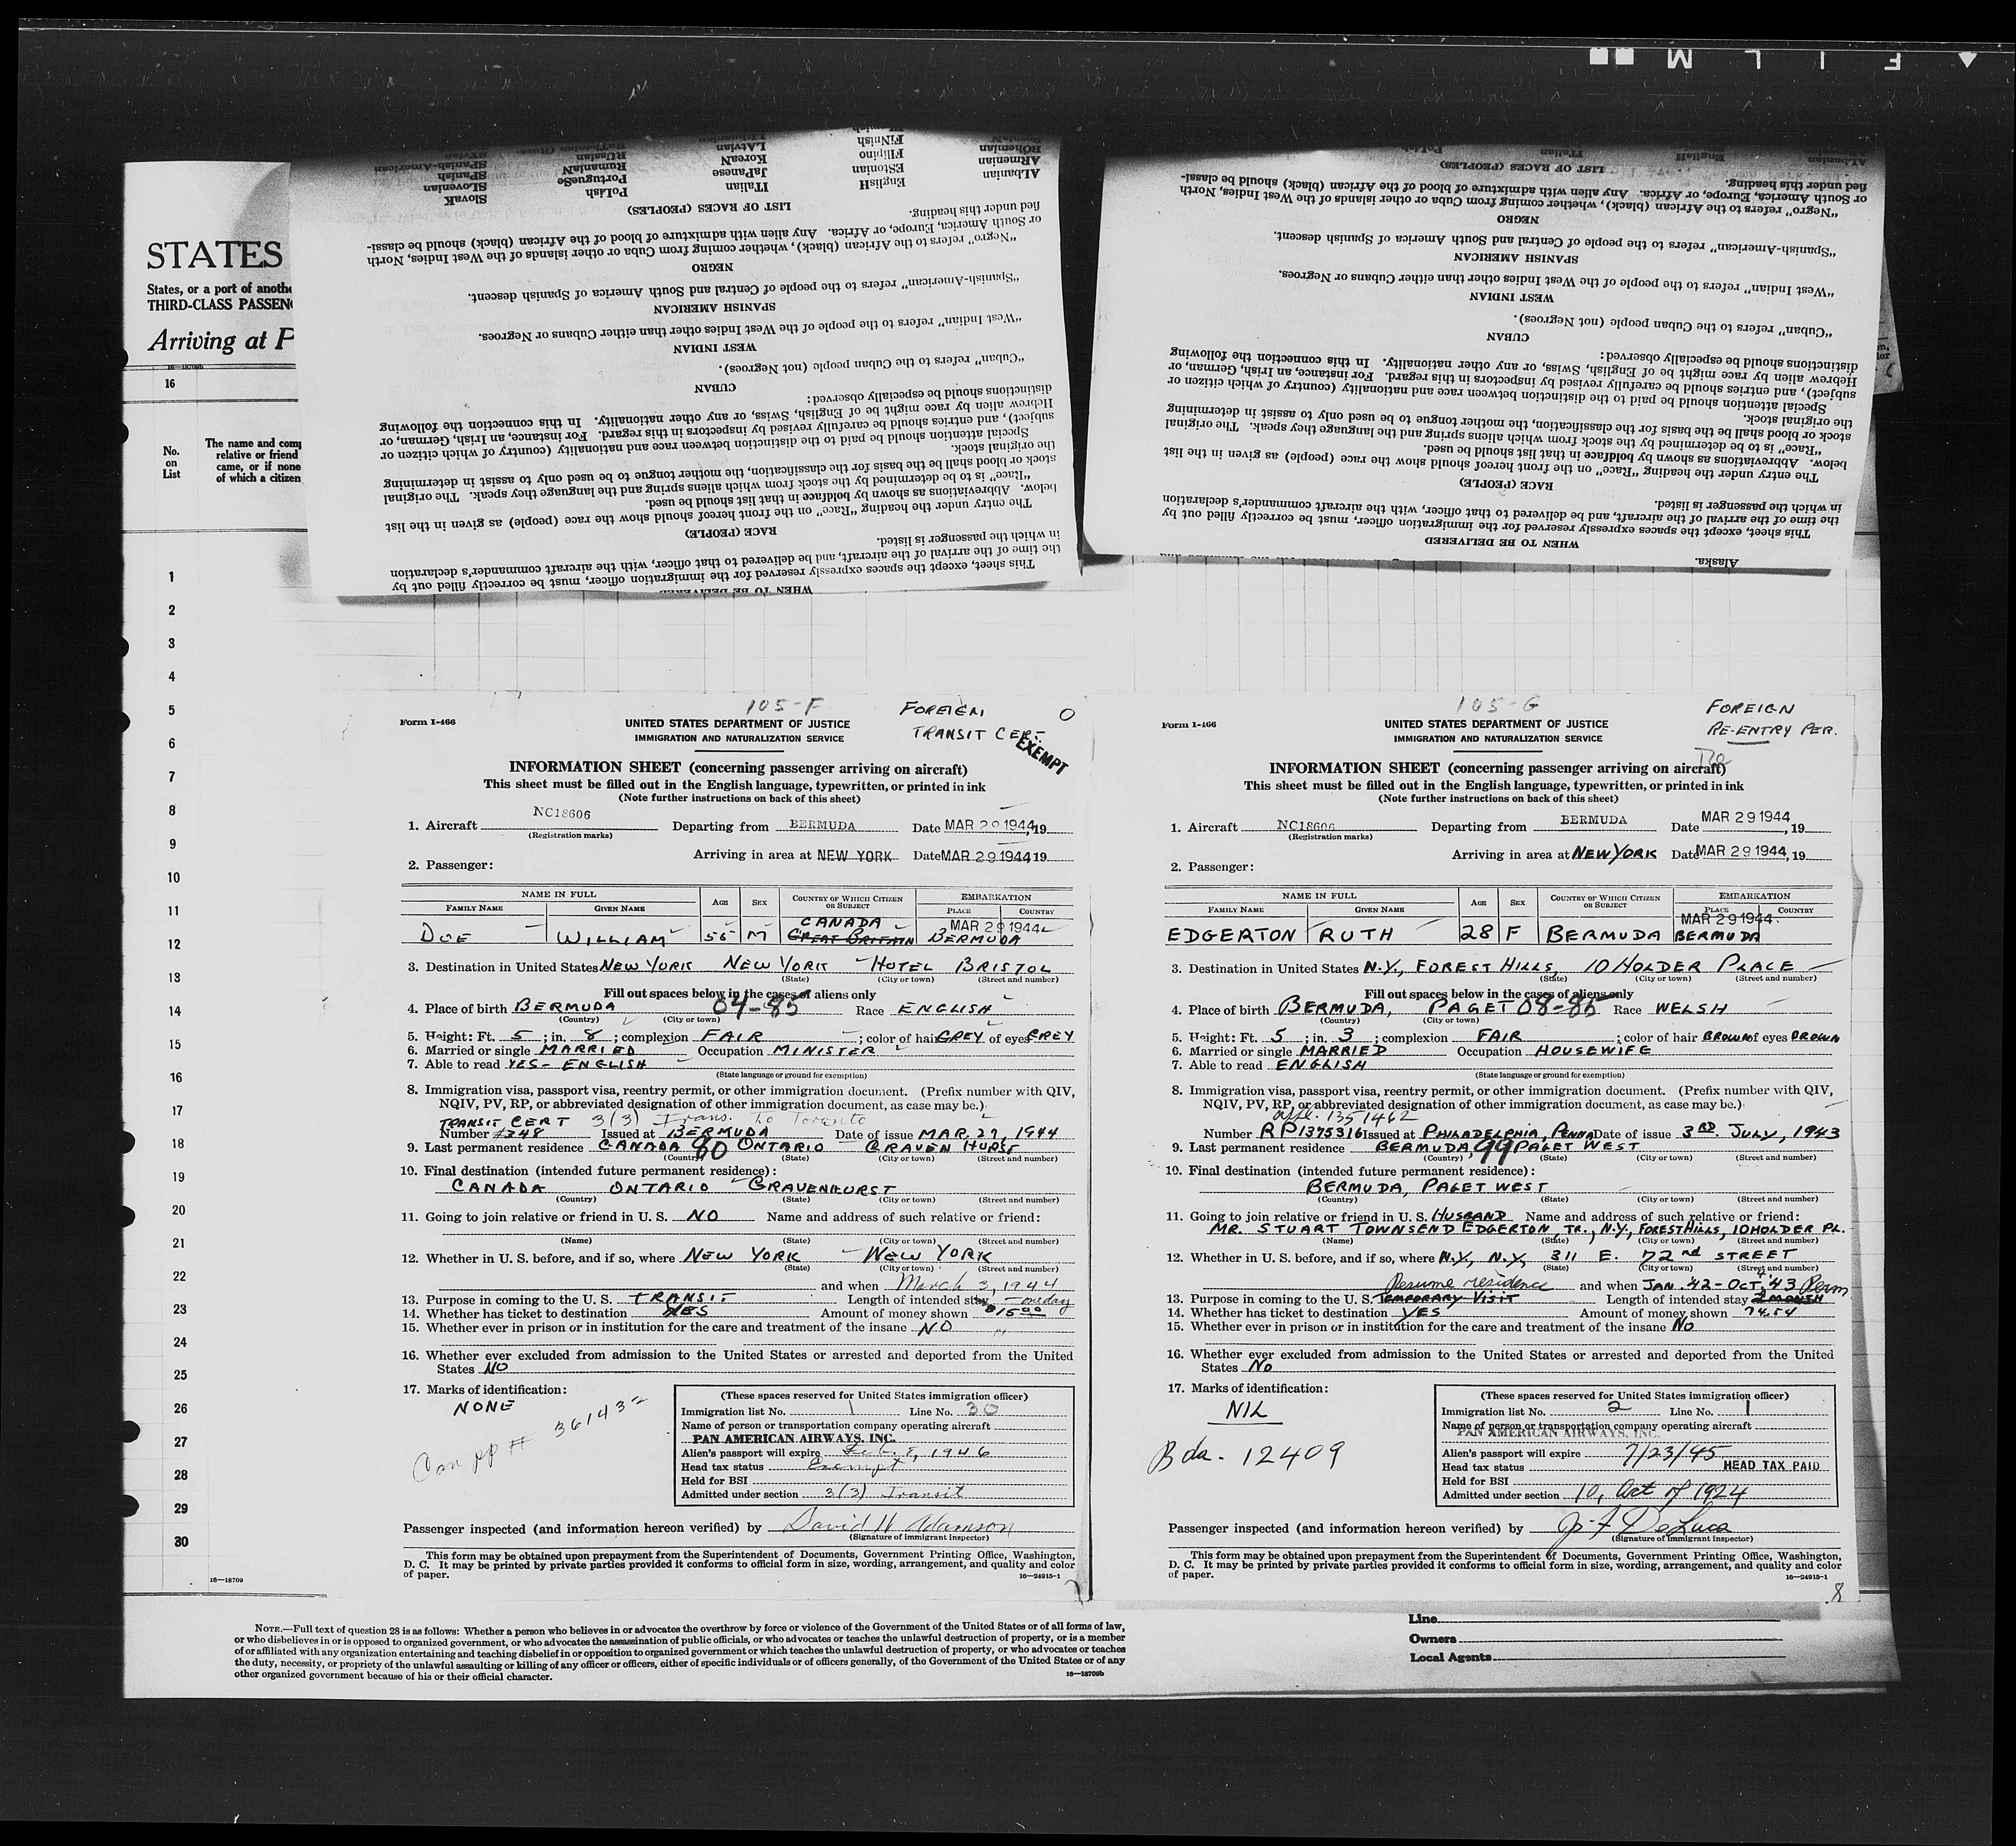 F I L M
STATES
States, or a port of anothe
THIRD-CLASS PASSEN
Arriving at P
16
No.
on
List
The name and comp
relative or friend
came, or if none
of which a citizen
1
2
3
4
5
6
7
8
9
10
11
12
13
14
15
16
17
18
19
20
21
22
23
24
25
26
27
28
29
30
16—18709
Albanian EnglisH ITalian PoLsh SlovaK
ARmenian EStonian JaPanese PortugueSe SLovenian
BOhemian Filipino KoreaN RumaniaN SPanish
FINnish LAtvian RUssian SPanish-American
LIST OF RACES (PEOPLES)
fied under this heading.
or South America, Europe, or Africa. Any alien with admixture of blood of the African (black) should be classi-
"Negro" refers to the African (black), whether coming from Cuba or other islands of the West Indies, North
NEGRO
"Spanish-American" refers to the people of Central and South America of Spanish descent.
SPANISH AMERICAN
"West Indian" refers to the people of the West Indies other than either Cubans or Negroes.
WEST INDIAN
"Cuban" refers to the Cuban people (not Negroes).
CUBAN
distinctions should be especially observed:
Hebrew alien by race might be of English, Swiss, or any other nationality. In this connection the following
subject), and entries should be carefully revised by inspectors in this regard. For instance, an Irish, German, or
Special attention should be paid to the distinction between race and nationality (country of which citizen or
the original stock.
stock or blood shall be the basis for the classification, the mother tongue to be used only to assist in determining
"Race" is to be determined by the stock from which aliens spring and the language they speak. The original
below. Abbreviations as shown by boldface in that list should be used.
The entry under the heading "Race" on the front hereof should show the race (people) as given in the list
RACE (PEOPLE)
in which the passenger is listed.
the time of the arrival of the aircraft, and be delivered to that officer, with the aircraft commander's declaration
This sheet, except the spaces expressly reserved for the immigration officer, must be correctly filled out by
WHEN TO BE DELIVERED
LIST OF RACES (PEOPLES)
fied under this heading.
or South America, Europe, or Africa. Any alien with admixture of blood of the African (black) should be classi-
"Negro" refers to the African (black), whether coming from Cuba or other islands of the West Indies, North
NEGRO
"Spanish-American" refers to the people of Central and South America of Spanish descent.
SPANISH AMERICAN
"West Indian" refers to the people of the West Indies other than either Cubans or Negroes.
WEST INDIAN
"Cuban" refers to the Cuban people (not Negroes).
CUBAN
distinctions should be especially observed:
Hebrew alien by race might be of English, Swiss, or any other nationality. In this connection the following
subject), and entries should be carefully revised by inspectors in this regard. For instance, an Irish, German, or
Special attention should be paid to the distinction between race and nationality (country of which citizen or
the original stock.
stock or blood shall be the basis for the classification, the mother tongue to be used only to assist in determining
"Race" is to be determined by the stock from which aliens spring and the language they speak. The original
below. Abbreviations as shown by boldface in that list should be used.
The entry under the heading "Race" on the front hereof should show the race (people) as given in the list
RACE (PEOPLE)
in which the passenger is listed.
the time of the arrival of the aircraft, and be delivered to that officer, with the aircraft commander's declaration
This sheet, except the spaces expressly reserved for the immigration officer, must be correctly filled out by
WHEN TO BE DELIVERED
Alaska.
105-F FOREIGN O
Form I-466 UNITED STATES DEPARTMENT OF JUSTICE TRANSIT CERT.
IMMIGRATION AND NATURALIZATION SERVICE EXEMPT
INFORMATION SHEET (concerning passenger arriving on aircraft)
This sheet must be filled out in the English language, typewritten, or printed in ink
(Note further instructions on back of this sheet)
1. Aircraft NC18606 Departing from BERMUDA Date MAR 29 1944, 19
(Registration marks)
Arriving in area at NEW YORK Date MAR 29 1944 19
2. Passenger:
NAME IN FULL AGE SEX COUNTRY OF WHICH CITIZEN OR SUBJECT EMBARKATION
FAMILY NAME GIVEN NAME PLACE COUNTRY
CANADA MAR 29 1944
DOE WILLIAM 55 M GREAT BRITAIN BERMUDA
3. Destination in United States NEW YORK NEW YORK HOTEL BRISTOL
(State) (City or town) (Street and number)
Fill out spaces below in the cases of aliens only
4. Place of birth BERMUDA 04-85 Race ENGLISH
(Country) (City or town)
5. Height: Ft. 5; in. 8; complexion FAIR; color of hair GREY of eyes GREY
6. Married or single MARRIED Occupation MINISTER
7. Able to read YES- ENGLISH
(State language or ground for exemption)
8. Immigration visa, passport visa, reentry permit, or other immigration document. (Prefix number with QIV,
NQIV, PV, RP, or abbreviated designation of other immigration document, as case may be.)
TRANSIT CERT 3(3) Trans. to Toronto
Number #348 Issued at BERMUDA Date of issue MAR. 27, 1944
9. Last permanent residence CANADA 80 ONTARIO GRAVEN HURST
(Country) (State) (City or town) (Street and number)
10. Final destination (intended future permanent residence):
CANADA ONTARIO GRAVENHURST
(Country) (State) (City or town) (Street and number)
11. Going to join relative or friend in U. S. NO Name and address of such relative or friend:
(Name) (State) (City or town) (Street and number)
12. Whether in U. S. before, and if so, where NEW YORK - NEW YORK
(State) (City or town) (Street and number)
and when March 3, 1944
13. Purpose in coming to the U. S. TRANSIT Length of intended stay one day
14. Whether has ticket to destination YES Amount of money shown $15.00
15. Whether ever in prison or in institution for the care and treatment of the insane NO
16. Whether ever excluded from admission to the United States or arrested and deported from the United
States NO
17. Marks of identification:
NONE
Can pp # 361432
(These spaces reserved for United States immigration officer)
Immigration list No. 1 Line No. 30
Name of person or transportation company operating aircraft
PAN AMERICAN AIRWAYS, INC.
Alien's passport will expire Feb. 8, 1946
Head tax status Exempt
Held for BSI
Admitted under section 3(3) Transit
Passenger inspected (and information hereon verified) by David H Adamson
(Signature of immigrant inspector)
This form may be obtained upon prepayment from the Superintendent of Documents, Government Printing Office, Washington,
D. C. It may be printed by private parties provided it conforms to official form in size, wording, arrangement, and quality and color
of paper. 16—24915-1
105-G FOREIGN
Form I-466 UNITED STATES DEPARTMENT OF JUSTICE RE-ENTRY PER.
IMMIGRATION AND NATURALIZATION SERVICE
INFORMATION SHEET (concerning passenger arriving on aircraft)
This sheet must be filled out in the English language, typewritten, or printed in ink
(Note further instructions on back of this sheet)
1. Aircraft NC18606 Departing from BERMUDA Date MAR 29 1944, 19
(Registration marks)
Arriving in area at NEW YORK Date MAR 29 1944, 19
2. Passenger:
NAME IN FULL AGE SEX COUNTRY OF WHICH CITIZEN OR SUBJECT EMBARKATION
FAMILY NAME GIVEN NAME PLACE COUNTRY
MAR 29 1944
EDGERTON RUTH 28 F BERMUDA BERMUDA
3. Destination in United States N.Y., FOREST HILLS, 10 HOLDER PLACE
(State) (City or town) (Street and number)
Fill out spaces below in the cases of aliens only
4. Place of birth BERMUDA, PAGET 08-85 Race WELSH
(Country) (City or town)
5. Height: Ft. 5; in. 3; complexion FAIR; color of hair BROWN of eyes BROWN
6. Married or single MARRIED Occupation HOUSEWIFE
7. Able to read ENGLISH
(State language or ground for exemption)
8. Immigration visa, passport visa, reentry permit, or other immigration document. (Prefix number with QIV,
NQIV, PV, RP, or abbreviated designation of other immigration document, as case may be.)
1351462
Number RP1375316 Issued at PHILADELPHIA, PENNA Date of issue 3RD. JULY, 1943
9. Last permanent residence BERMUDA, 99 PAGET WEST
(Country) (State) (City or town) (Street and number)
10. Final destination (intended future permanent residence):
BERMUDA, PAGET WEST
(Country) (State) (City or town) (Street and number)
11. Going to join relative or friend in U. S. HUSBAND Name and address of such relative or friend:
MR. STUART TOWNSEND EDGERTON, JR., N.Y., FOREST HILLS, 10 HOLDER PL.
(Name) (State) (City or town) (Street and number)
12. Whether in U. S. before, and if so, where N.Y., N.Y., 311 E. 72nd STREET
(State) (City or town) (Street and number)
Resume residence and when JAN. '42 - OCT. '43 Perm
13. Purpose in coming to the U. S. TEMPORARY VISIT Length of intended stay MONTH
14. Whether has ticket to destination YES Amount of money shown 74.54
15. Whether ever in prison or in institution for the care and treatment of the insane NO
16. Whether ever excluded from admission to the United States or arrested and deported from the United
States NO
17. Marks of identification:
NIL
Bda. 12409
(These spaces reserved for United States immigration officer)
Immigration list No. 2 Line No. 1
Name of person or transportation company operating aircraft
PAN AMERICAN AIRWAYS, INC.
Alien's passport will expire 7/23/45
Head tax status HEAD TAX PAID
Held for BSI
Admitted under section 10, Act of 1924
Passenger inspected (and information hereon verified) by J. F DeLuca
(Signature of immigrant inspector)
This form may be obtained upon prepayment from the Superintendent of Documents, Government Printing Office, Washington,
D. C. It may be printed by private parties provided it conforms to official form in size, wording, arrangement, and quality and color
of paper. 16—24915-1
8
NOTE.—Full text of question 28 is as follows: Whether a person who believes in or advocates the overthrow by force or violence of the Government of the United States or of all forms of law,
or who disbelieves in or is opposed to organized government, or who advocates the assassination of public officials, or who advocates or teaches the unlawful destruction of property, or is a member
of or affiliated with any organization entertaining and teaching disbelief in or opposition to organized government or which teaches the unlawful destruction of property, or who advocates or teaches
the duty, necessity, or propriety of the unlawful assaulting or killing of any officer or officers, either of specific individuals or of officers generally, of the Government of the United States or of any
other organized government because of his or their official character. 16—18709b
Line
Owners
Local Agents